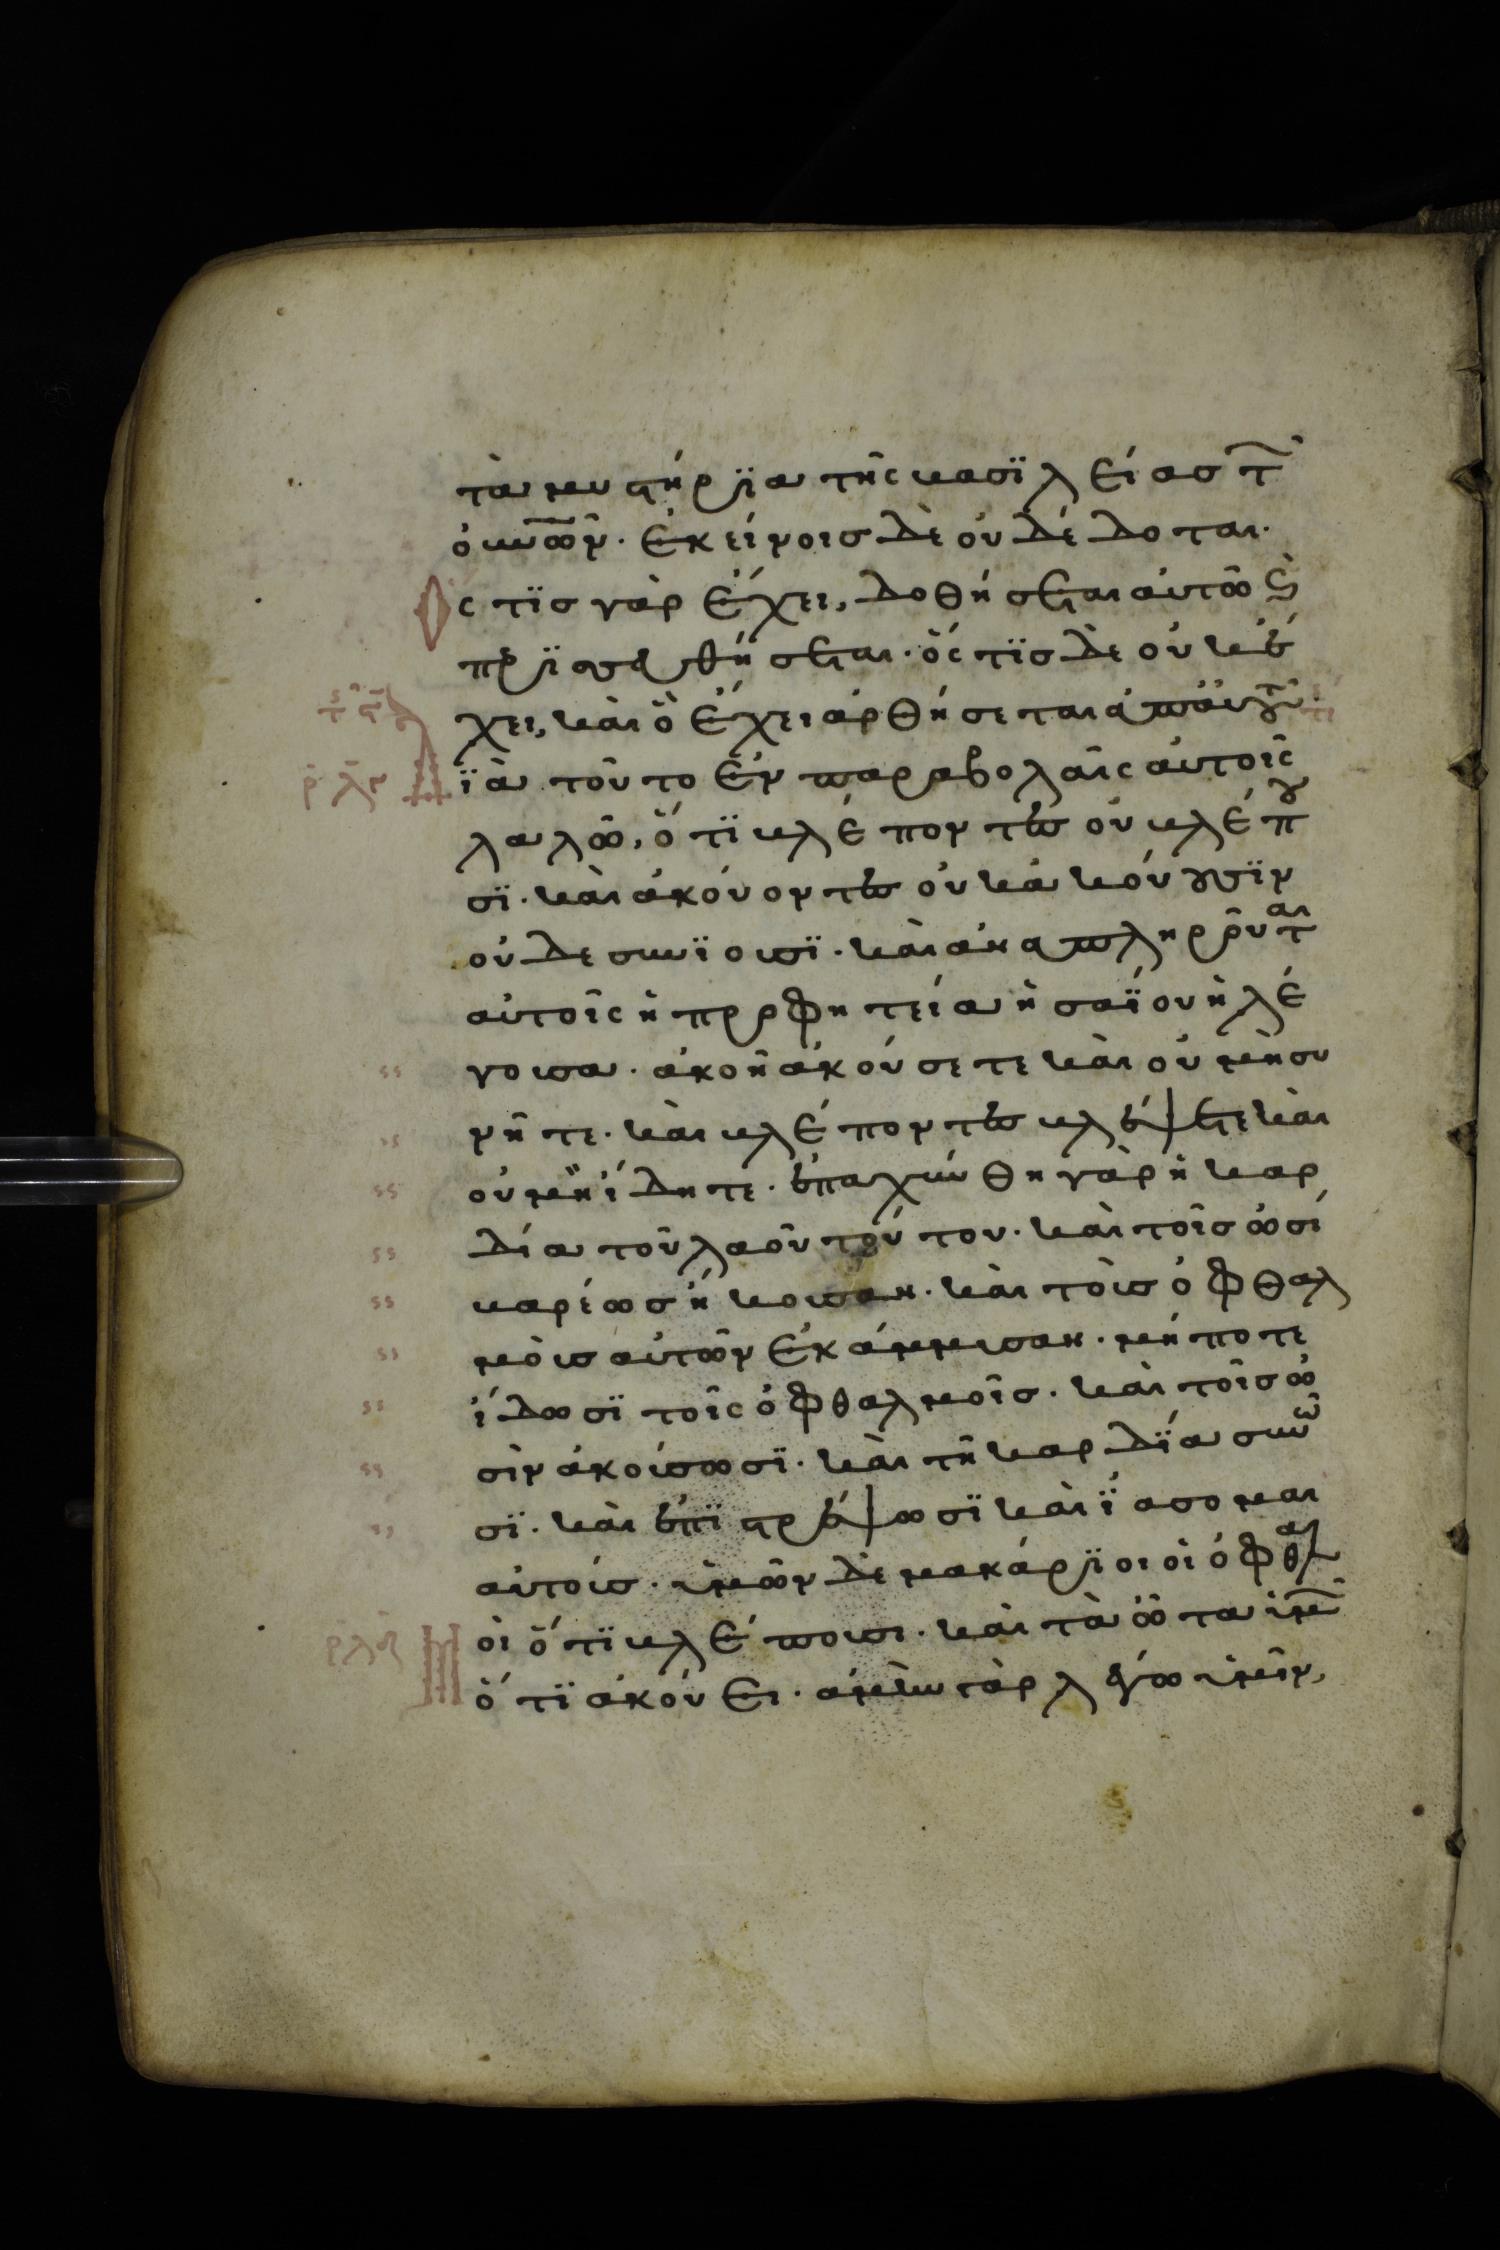 τὰ μυστήρϊα τῆς βασϊλείασ τ
ὀυνῶν· ἐκείνοισ δὲ οὐ δέδοται·
Ὅς τϊσ γὰρ ἔχει, δοθήσεται αὐτῶ καὶ
περϊσσευθήσεται· ὅς τϊσ δὲ οὐκ ἔ
χει, καὶ ὃ ἔχει ἀρθήσεται ἀπ αὐτοῦ
Δϊὰ τοῦτο ἐν παραβολαῖς αὐτοῖς
λαλῶ, ὅτϊ βλέποντες οὐ βλέπου
σϊ· καὶ ἀκόυοντες οὐκ ἀκόυουσϊν
οὐδε συνϊουσϊ· καὶ ἀναπληροῦται
αὐτοῖς ἡ προφητεία ἡσαΐου ἡ λέ
γουσα· ἀκοῆ ἀκόυσετε καὶ οὐ μὴ συ
νῆτε· καὶ βλέποντες βλέψετε καὶ
οὐ μὴ ἴδητε· ἐπαχύνθη γὰρ ἡ καρ
δία τοῦ λαοῦ τούτου· καὶ τοῖσ ὠσὶ
βαρέωσ ἤκουσαν· καὶ τοὺσ ὀφθαλ
μὸυσ αὐτῶν ἐκάμμυσαν· μήποτε
ἴδωσϊ τοῖς ὀφθαλμοῖσ· καὶ τοῖσ ὠ
σὶν ἀκούσωσϊ· καὶ τῆ καρδϊα συνῶ
σϊ· καὶ ἐπϊστρέψωσϊ καὶ ϊάσομαι
αὐτούσ· ὑμῶν δὲ μακάρϊοι οἱ ὀφθαλ
μοὶ ὅτϊ βλέπουσι· καὶ τὰ ὦτα ὑμῶν
ὅτϊ ἀκόυει· ἀμὴν γὰρ λέγω ὑμῖν,